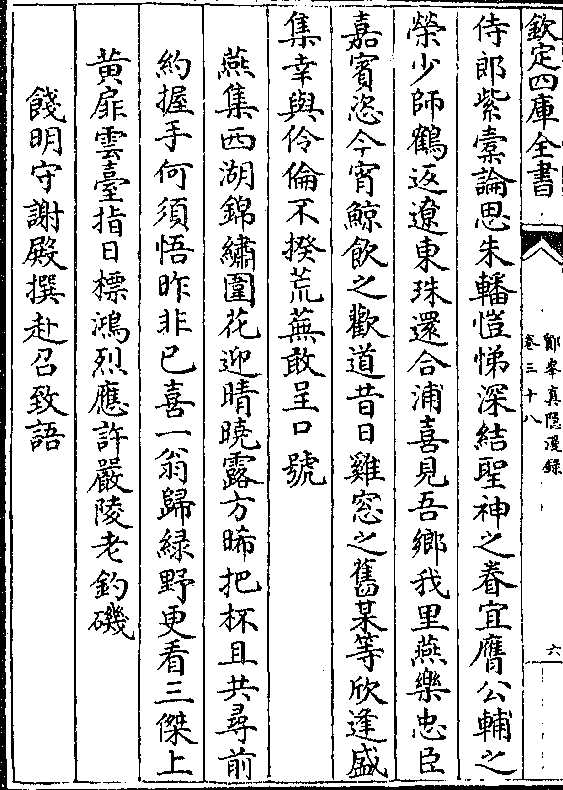 欽定四庫全書
鄮峰真隱漫錄
卷三十八
六
侍郎紫橐論思朱轓愷悌深結聖神之眷宜膺公輔之
榮少師鶴返遼東珠還合浦喜見吾鄉我里燕樂忠臣
嘉賓恣今宵鯨飲之歡道昔日雞窓之舊某等欣逢盛
集幸與伶倫不揆荒蕪敢呈口號
燕集西湖錦繡圍花迎晴曉露方晞把杯且共尋前
約握手何須悟昨非已喜一翁歸緑野更看三傑上
黄扉雲臺指日標鴻烈應許嚴陵老釣磯
餞明守謝殿撰赴召致語